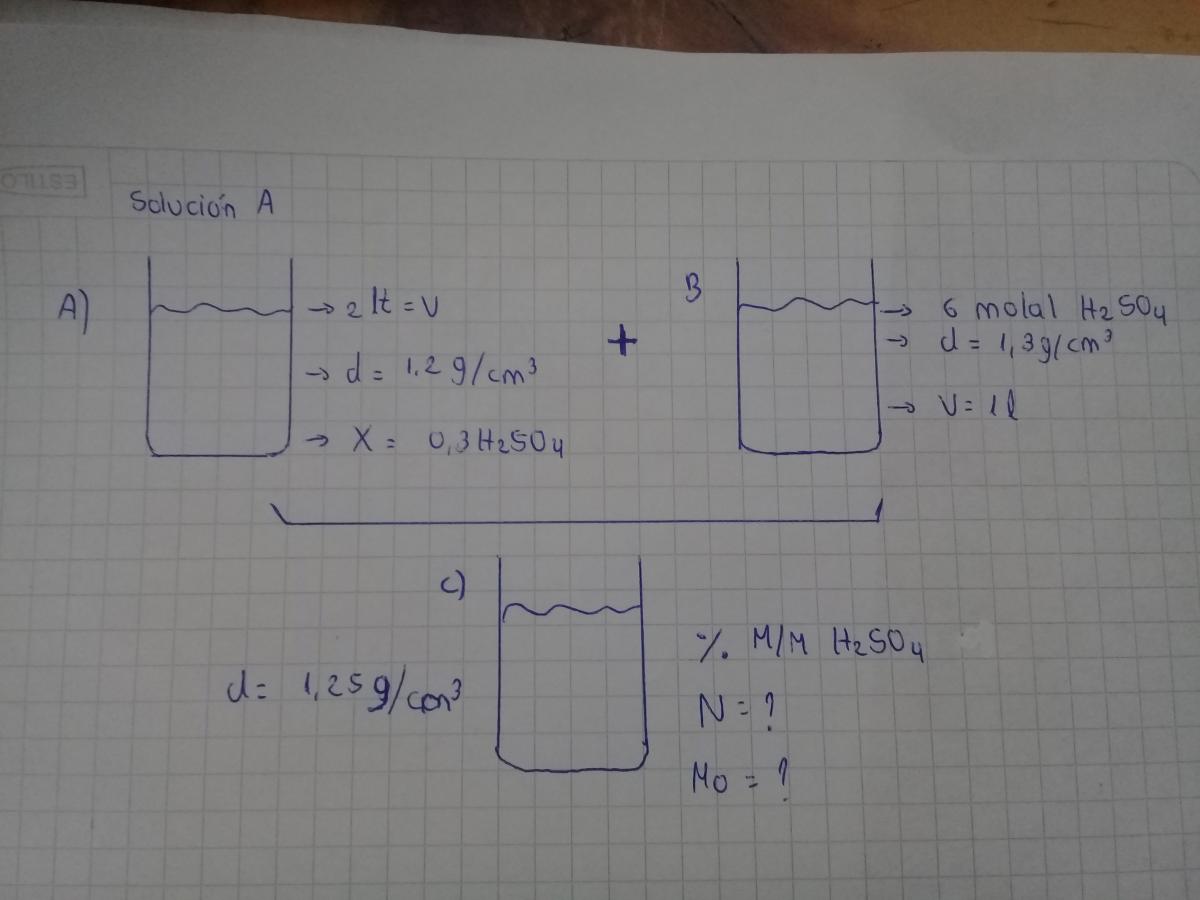 ESTILO
Solución A
A)
→ 2 lt = V
→ d = 1.2 g/cm³
→ X = 0,3 H₂SO₄
+
B
→ 6 molal H₂SO₄
→ d = 1,3g/cm³
→ V = 1 l
C)
d = 1,25 g/cm³
% M/M H₂SO₄
N = ?
Mo = ?